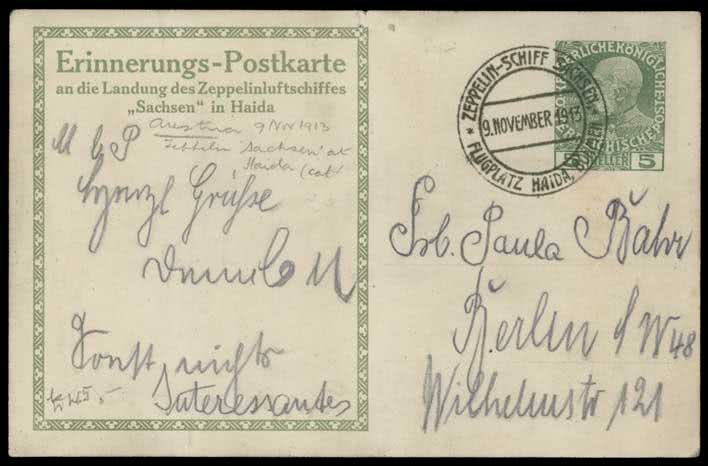 Erinnerungs-Postkarte
an die Landung des Zeppelinluftschiffes
„Sachsen" in Haida
Austria 9 Nov 1913
Zeppelin 'Sachsen' at
Haida (cat
M L P
Herzl Grüße
Sonst nichts
Interessantes
ZEPPELIN-SCHIFF „SACHSEN"
9. NOVEMBER 1913
* FLUGPLATZ HAIDA, BÖHMEN *
KAISERLICHE KÖNIGLICHE ÖSTERREICHISCHE POST
5 HELLER 5
Frl. Paula Bahr
Berlin SW 48
Wilhelmstr 121